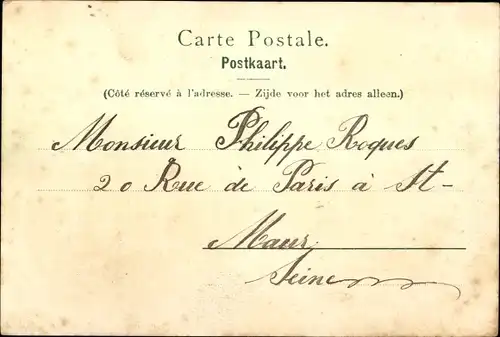 Carte Postale.
Postkaart.
(Côté réservé à l'adresse. — Zijde voor het adres alleen.)
Monsieur Philippe Roques
20 Rue de Paris à St-
Maur
Seine